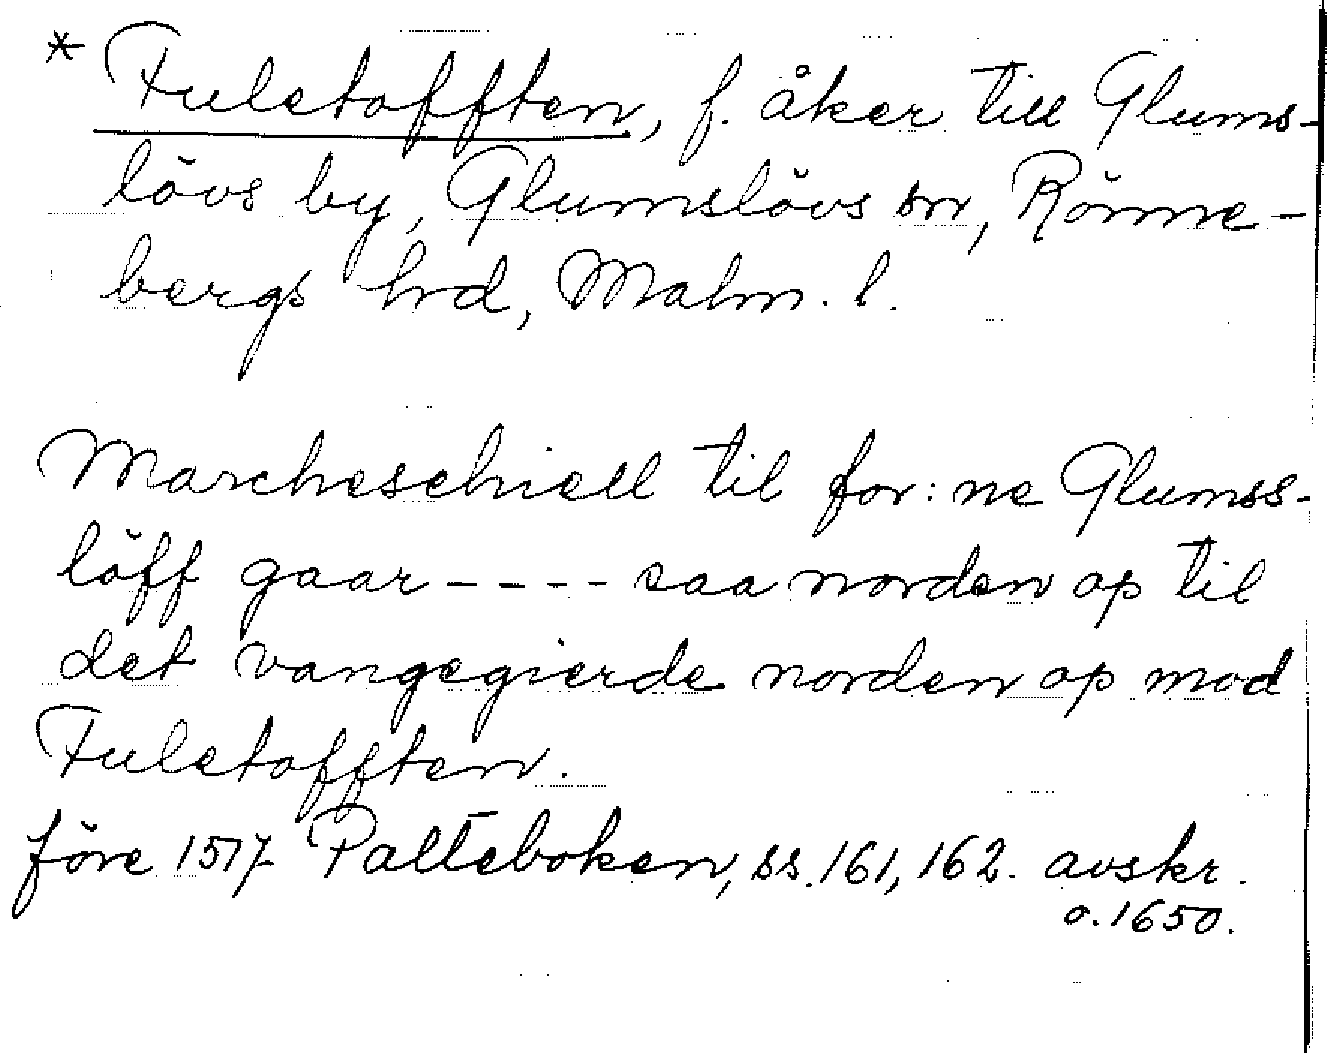 * Fuletofften, f. åker till Glums-
lövs by, Glumslövs sn, Rönne-
bergs hd, Malm. l.
Marcheschiell til for: ne Glumss-
löff gaar - - - - saa norden op til
det vangegierde norden op mod
Fuletofften.
före 1517 Palteboken, ss. 161, 162. avskr.
o. 1650.